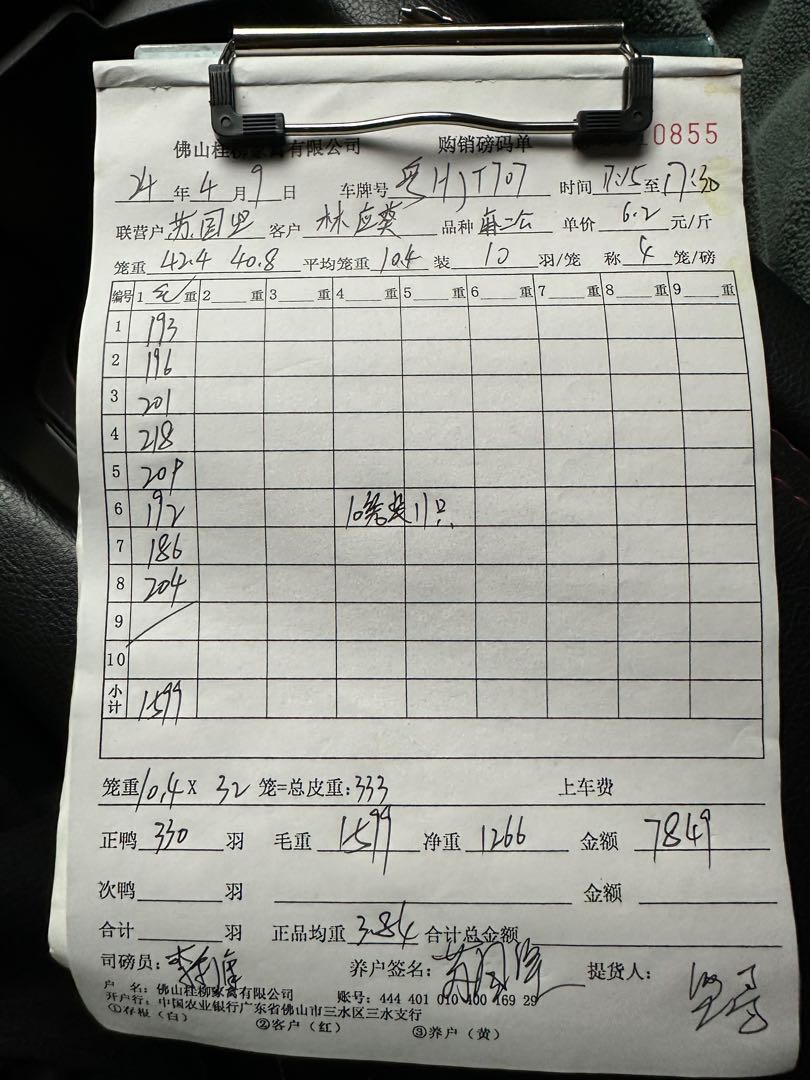 佛山桂柳家禽有限公司 购销磅码单 0855
24 年 4 月 9 日 车牌号 粤HJT707 时间 17:15 至 17:30
联营户 苏国 客户 林应葵 品种 麻二公 单价 6.2 元/斤
笼重 42.4 40.8 平均笼重 10.4 装 10 羽/笼 称 4 笼/磅
编号 1 毛 重 2 重 3 重 4 重 5 重 6 重 7 重 8 重 9 重
1 193
2 196
3 201
4 218
5 209
6 192 10笼装11只
7 186
8 204
9
10
小计 1599
笼重 10.4 X 32 笼=总皮重: 333 上车费
正鸭 330 羽 毛重 1599 净重 1266 金额 7849
次鸭 羽 金额
合计 羽 正品均重 3.84 合计总金额
司磅员: 养户签名: 提货人:
户 名: 佛山桂柳家禽有限公司 账号: 444 401 010 400 169 29
开户行: 中国农业银行广东省佛山市三水区三水支行
①存根(白) ②客户(红) ③养户(黄)